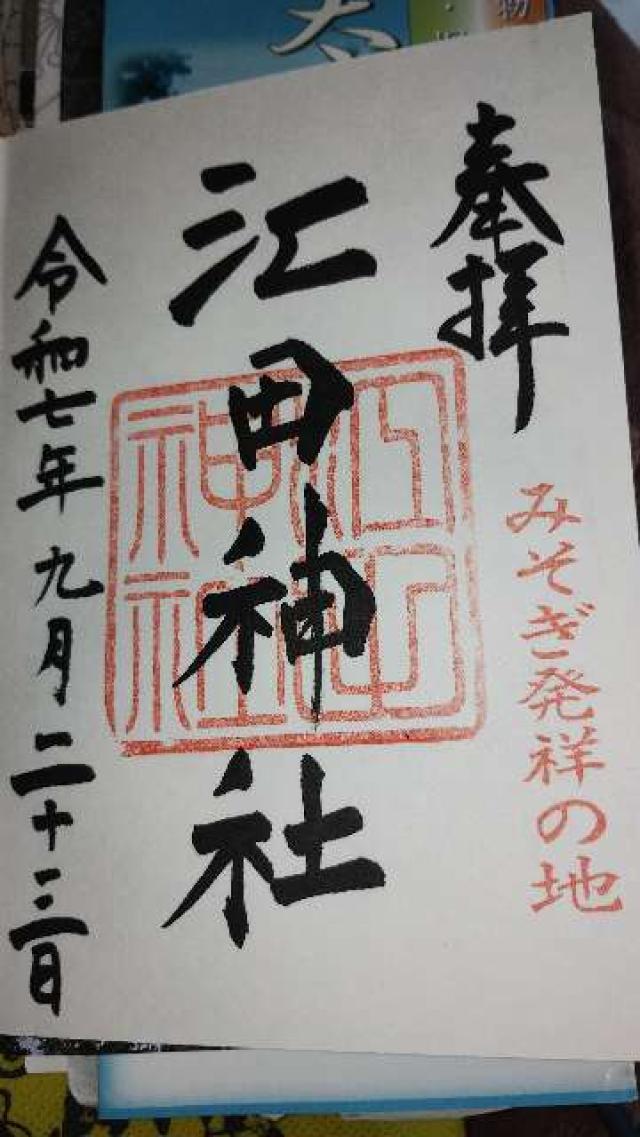 奉拝
みそぎ発祥の地
江田神社
江田神社
令和七年九月二十三日